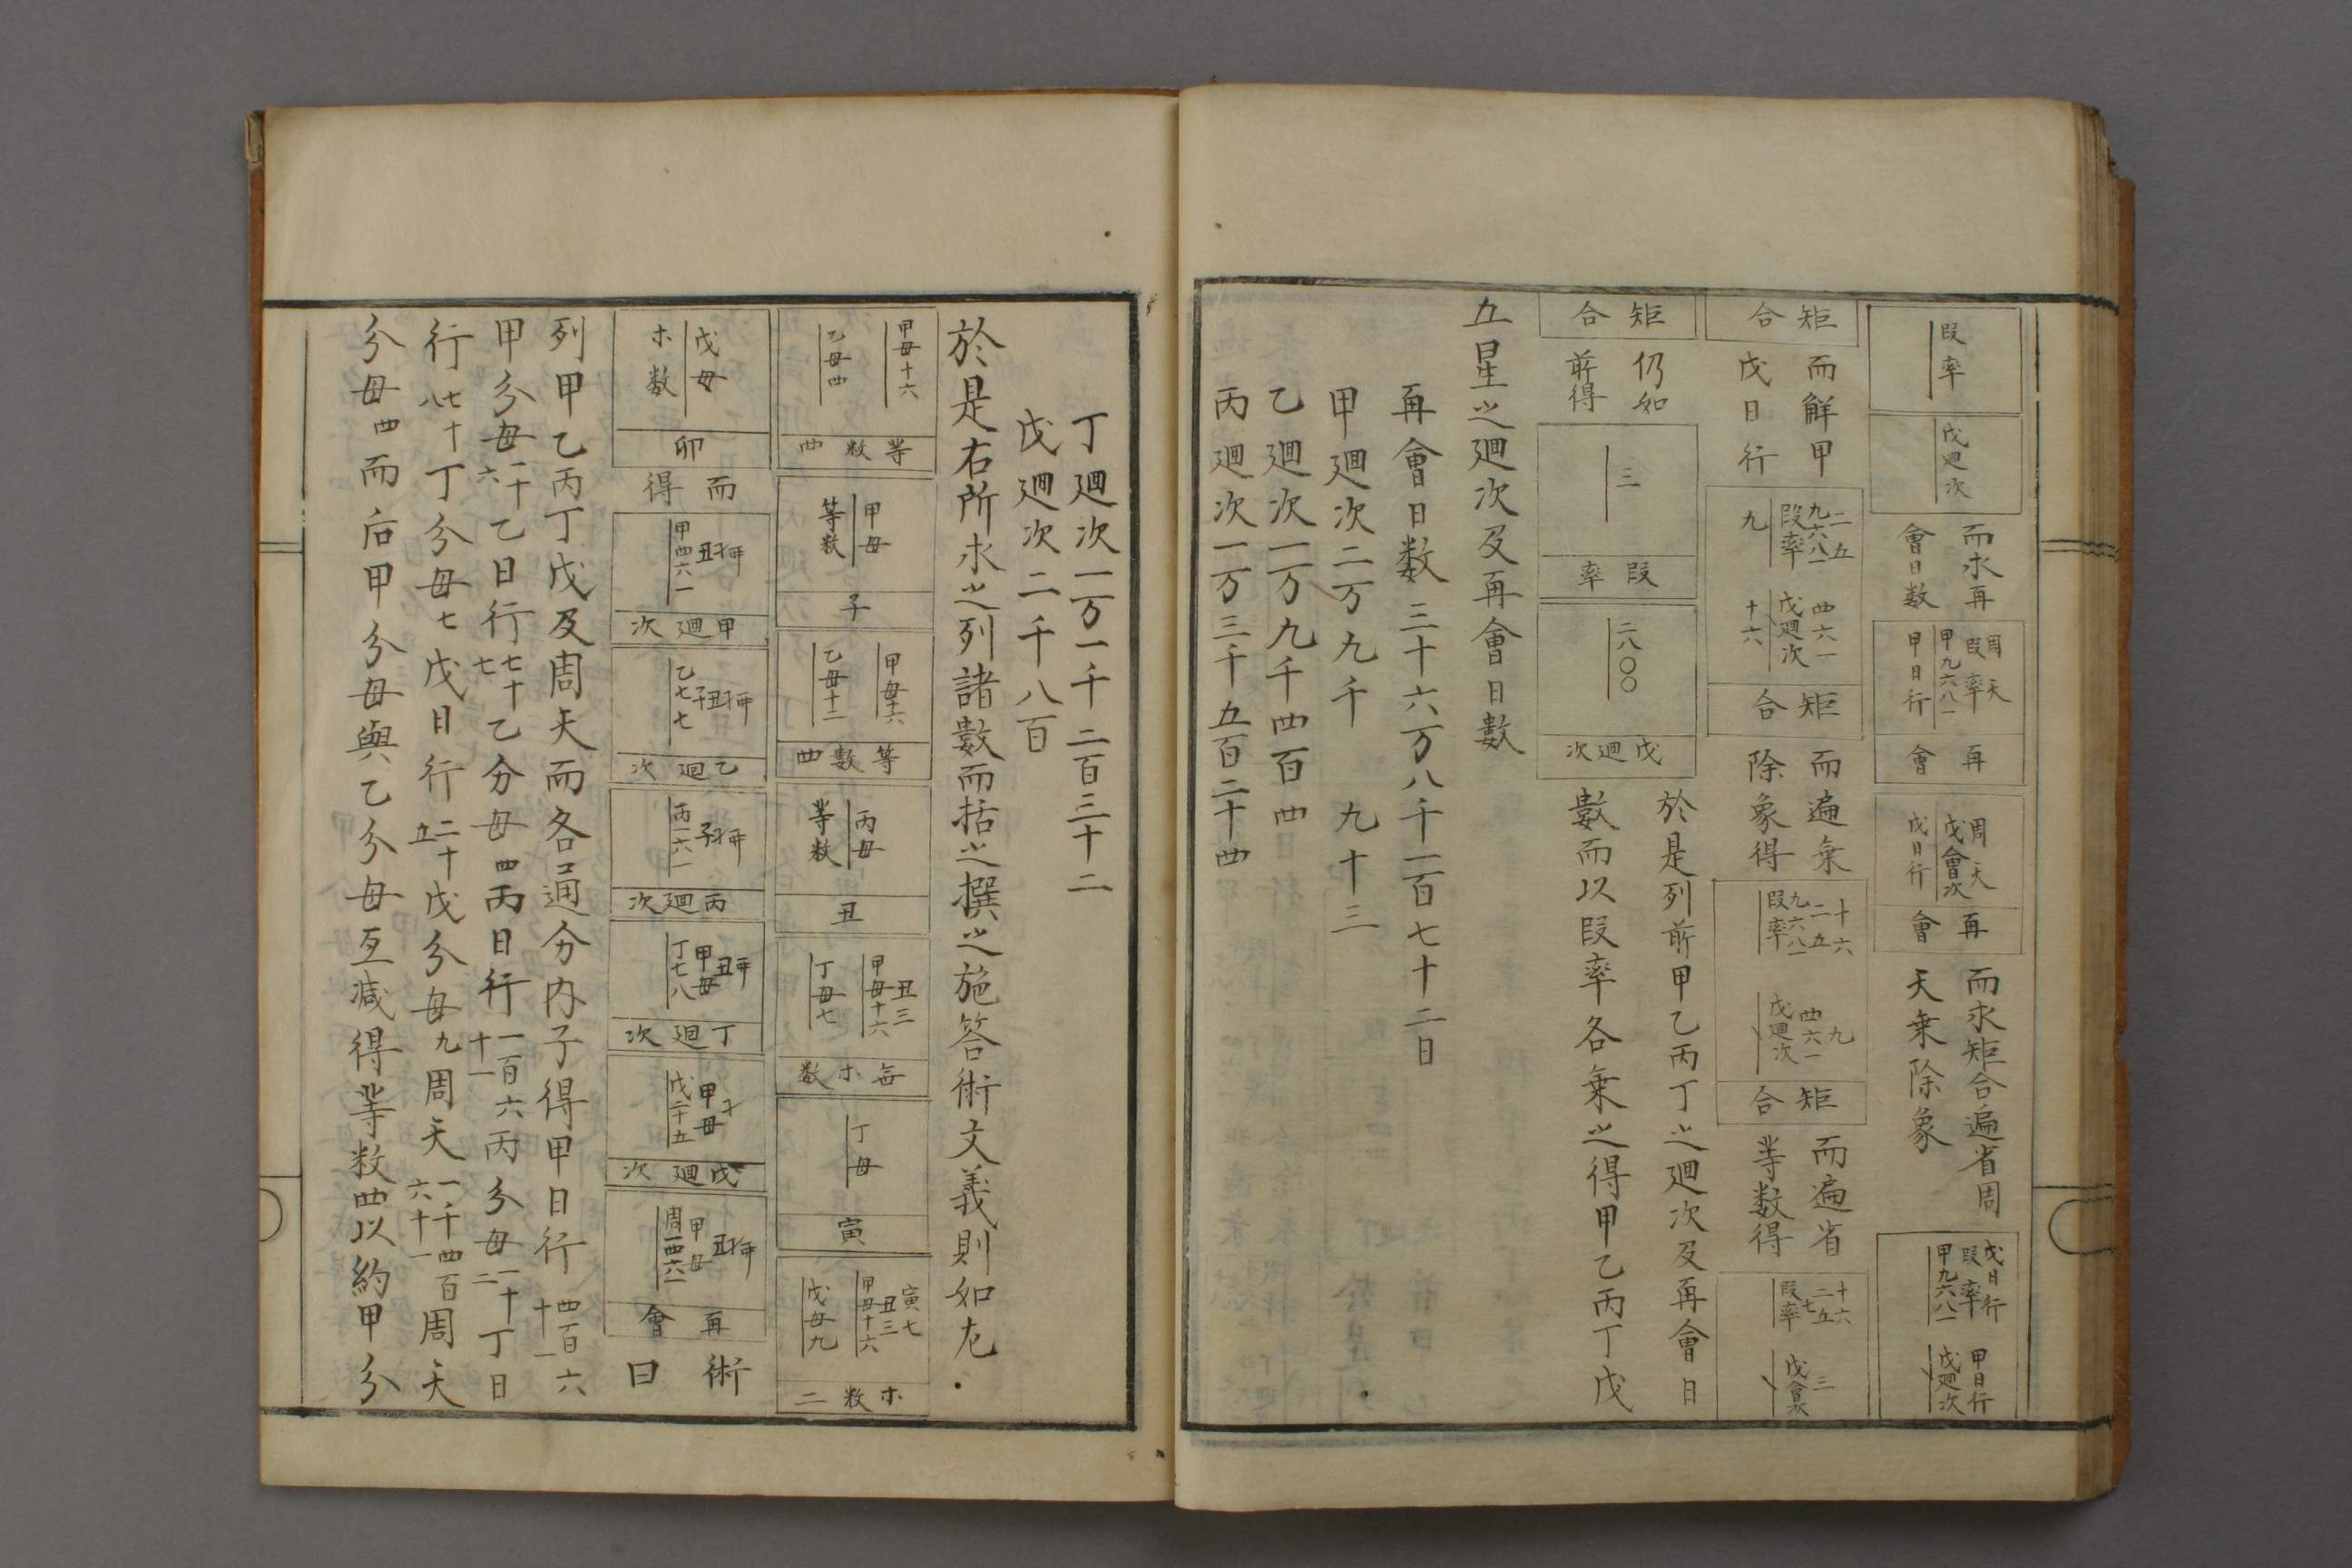 叚率
戊廻次
而求再
會日数
周天
叚率
甲九六八一
甲日行
再會
周天
戊會次
戊日行
再會
而求矩合遍省周
天乗除象
戊日行
叚率
甲九六八一
甲日行
戊廻次
矩合
而觧甲
戊日行
二五
九六八一
叚率
九
四六一
戊廻次
十六
矩合
而遍乗
除象得
十六
二五
九六八一
叚率
九
四六一
戊廻次
矩合
而遍省
等数得
十六
二五
七
叚率
三
戊會次
矩合
仍如
前得
三
叚率
二八〇〇
戊廻次
於是列前甲乙丙丁之廻次及再會日
數而以叚率各乗之得甲乙丙丁戊
五星之廻次及再會日數
再會日数三十六万八千一百七十二日
甲廻次二万九千 九十三
乙廻次一万九千四百四
丙廻次一万三千五百二十四
丁廻次一万一千二百三十二
戊廻次二千八百
於是右所求之列諸數而括之撰之施答術文義則如左
甲母十六
乙母四
等数四
甲母
等数
子
甲母十六
乙母十二
等數四
丙母
等数
丑
丑三
甲母十六
丁母七
每木数
丁母
寅
寅七
丑三
甲母十六
戊母九
木数二
戊母
木数
卯
而得
丑
甲四六一
甲廻次
丑
子
乙七七
乙廻次
子
丙一六一
丙廻次
丑
甲母
丁七八
丁廻次
甲母
戊二十五
戊廻次
丑
甲母
周一四六一
再會
術曰
列甲乙丙丁戊及周天而各通分内子得甲日行四百六十一
甲分母一十六乙日行七十七乙分母四丙日行一百六十一丙分母一十二丁日
行七十八丁分母七戊日行二十五戊分母九周天一千四百六十一周天
分母四而后甲分母與乙分母互減得等数四以約甲分